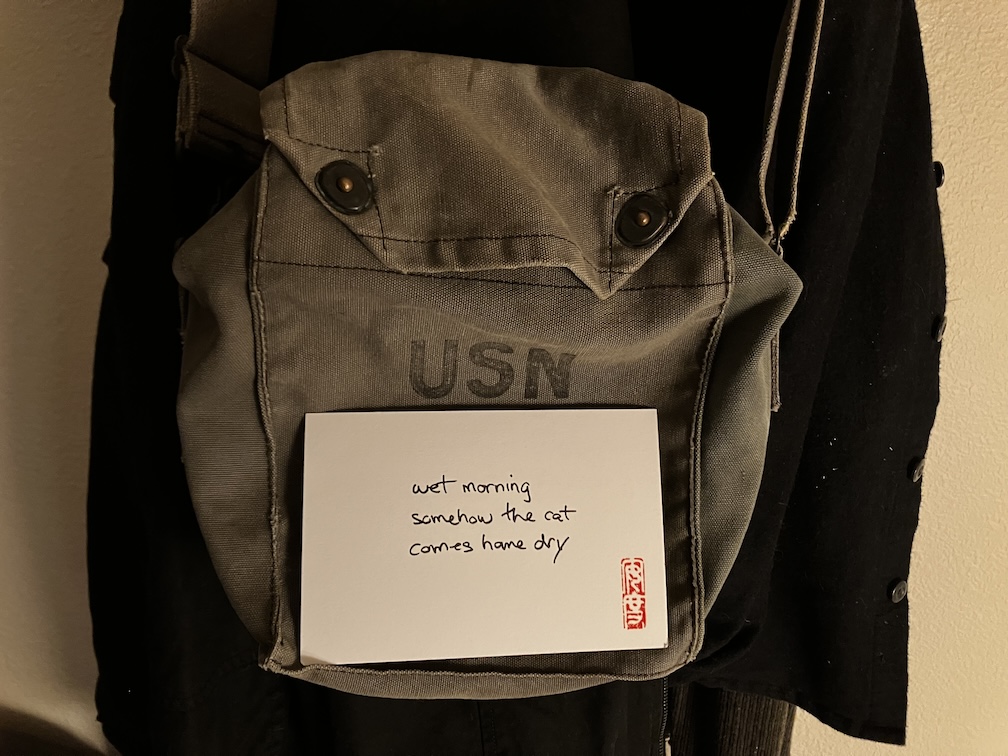 USN
wet morning
somehow the cat
comes home dry